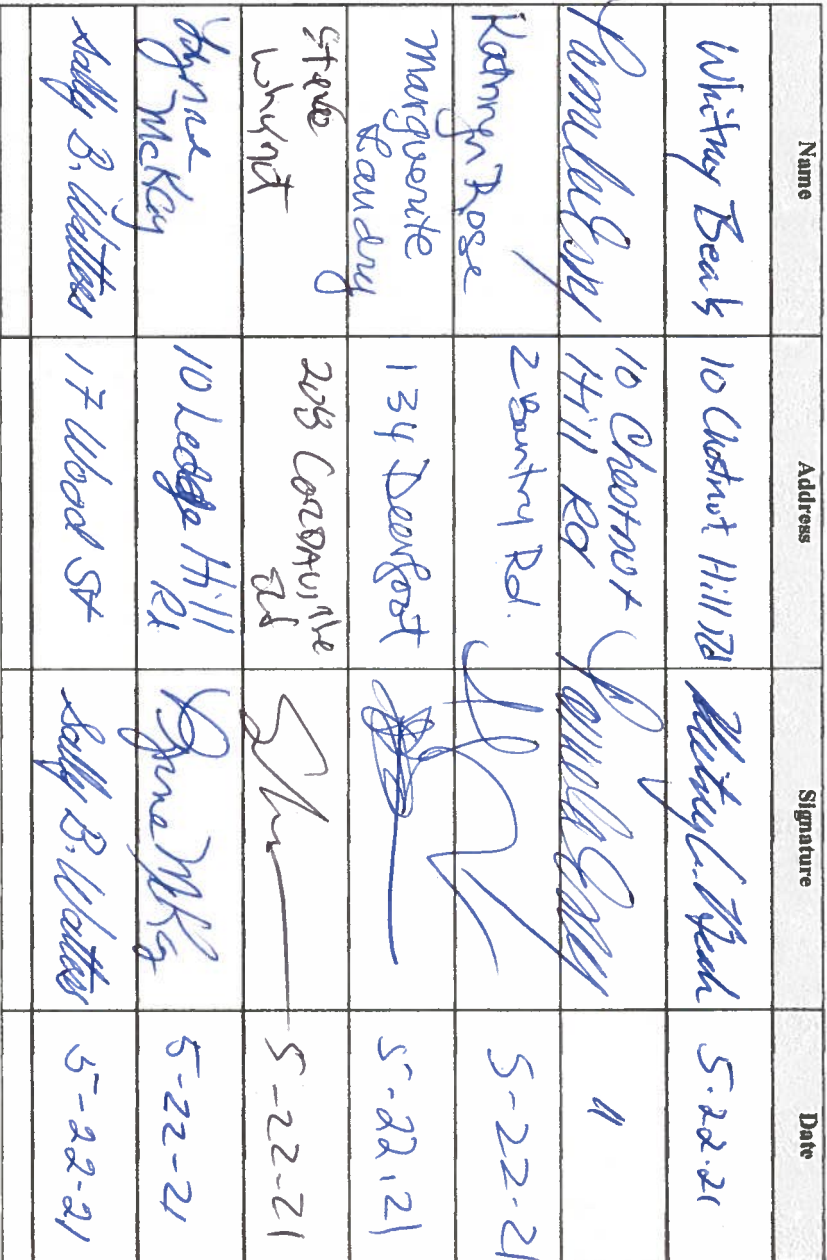 Name Address Signature Date
Whitney Beals 10 Chestnut Hill Rd Whitney Beals 5.22.21
10 Chestnut
Hill Rd "
Kathryn Rose 2 Bantry Rd. 5-22-21
Marguerite
Landry 134 Deerfoot 5-22.21
Steve
Whynot 203 Cordaville
Rd 5-22-21
Lynne
McKay 10 Ledge Hill
Rd Lynne McKay 5-22-21
Sally B. Watters 17 Wood St Sally B. Watters 5-22-21